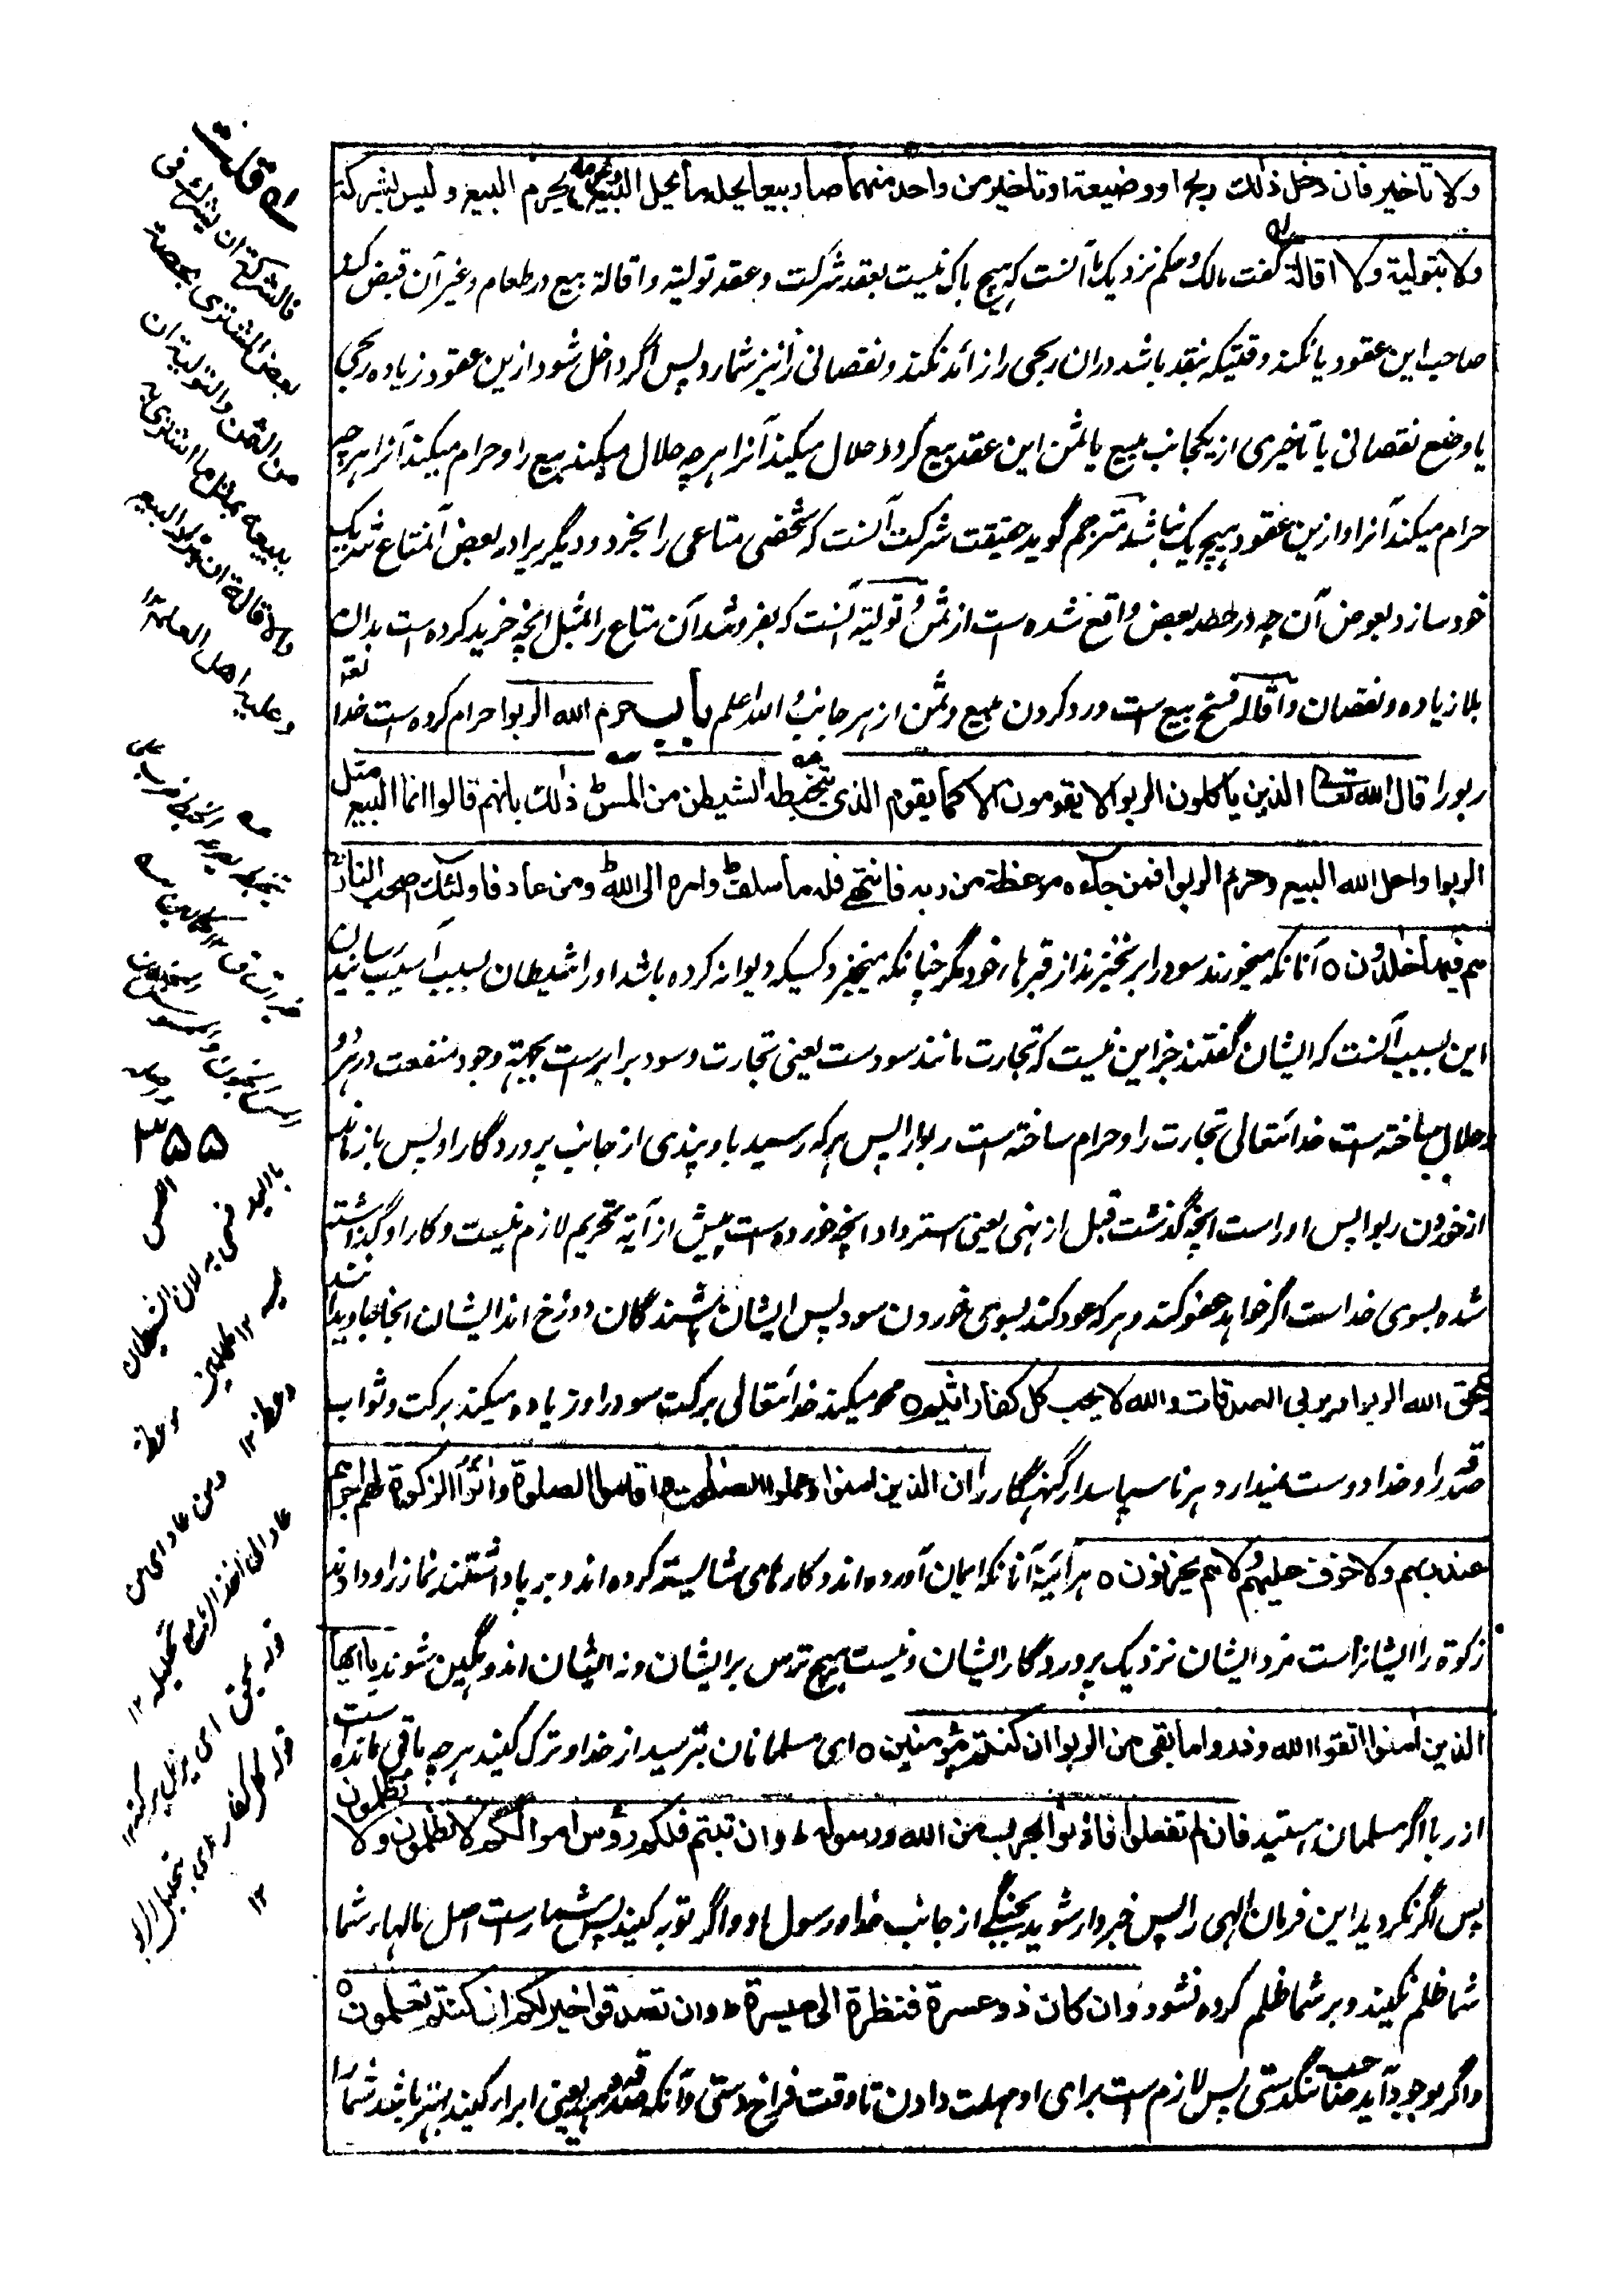 ولا تاخیر فان دخل ذلك ربح او وضیعة او تاخیر من واحد منهما صار بیعا یحله ما یحل البیع ویحرمه ما یحرم البیع ولیس بشركة
ولا بتولیة ولا اقالة گفت مالک و حکم نزدیک ما آنست که هیچ باک نیست بعقد شرکت و عقد تولیة و اقالة بیع در طعام و غیر آن قبض کند
صاحب این عقود یا نکند وقتیکه بنقد باشد و در ان ربحی را زائد نکند و نقصانی را نیز نشمارد پس اگر داخل شود ازین عقود زیاده ربحی
یا وضع نقصانی یا تاخیری از یکجانب مبیع یا ثمن این عقد بیع گردد حلال میکند آنرا هر چه حلال میکند بیع را و حرام میکند آنرا هر چه
حرام میکند آنرا و ازین عقود هیچ یک نباشد مترجم گوید حقیقت شرکت آنست که شخصی متاعی را بخرد و دیگریرا در بعض آنمتاع شریک
خود سازد بعوض آن چه در حصه بعض واقع شده است از ثمن و تولیة آنست که بفروشد آن متاع را بمثل آنچه خرید کرده است بدان نقد
بلا زیاده و نقصان و اقاله فسخ بیع است و رد کردن مبیع و ثمن از هر جانب و الله اعلم باب حرم الله الربوا حرام کرده است خدا
ربورا قال الله تعالی الذین یاكلون الربوا لا یقومون الا كما یقوم الذی یتخبطه الشیطن من المس ذلك بانهم قالوا انما البیع مثل
الربوا واحل الله البیع وحرم الربوا فمن جاءه موعظة من ربه فانتهی فله ما سلف وامره الی الله ومن عاد فاولئك اصحب النار
هم فیها خلدون ○ آنانکه میخورند سود را بر نخیزند از قبرهاء خود مگر چنانکه میخیزد کسیکه دیوانه کرده باشد او را شیطان بسبب آسیب رسانیدن
این بسبب آنست که ایشان گفتند جز این نیست که تجارت مانند سودست یعنی تجارت و سود برابرست بجهة وجود منفعت در هر دو
و حلال ساخته است خدائتعالی تجارت را و حرام ساخته است ربوا را پس هر که رسید باو پندی از جانب پروردگار او پس باز ماند
از خوردن ربوا پس او راست آنچه گذشت قبل از نهی یعنی استرداد آنچه خورده است پیش از آیة تحریم لازم نیست و کار او گذاشته
شده بسوی خداست اگر خواهد عفو کند و هر که عود کند بسوی خوردن سود پس ایشان باشندگان دوزخ اند ایشان آنجا جاویدانند
یمحق الله الربوا ویربی الصدقات والله لا یحب كل كفار اثیم ○ محو میکند خدائتعالی برکت سود را و زیاده میکند برکت و ثواب
صدقه را و خدا دوست نمیدارد هر ناسپاسدار گنهگار را ان الذین امنوا وعملوا الصلحت واقاموا الصلوة واتوا الزكوة لهم اجرهم
عند ربهم ولا خوف علیهم ولا هم یحزنون ○ هر آئینه آنانکه ایمان آورده اند و کارهای شایسته کرده اند و بر پا داشتند نماز را و دادند
زکوة را ایشانراست مزد ایشان نزدیک پروردگار ایشان و نیست هیچ ترس بر ایشان و نه ایشان اندوهگین شوند یا ایها
الذین امنوا اتقوا الله وذروا ما بقی من الربوا ان كنتم مؤمنین ○ ای مسلمانان بترسید از خدا و ترک کنید هر چه باقی مانده است
از ربا اگر مسلمان هستید فان لم تفعلوا فاذنوا بحرب من الله ورسوله وان تبتم فلكم رؤس اموالكم لا تظلمون ولا تظلمون
پس اگر نکردید این فرمان الهی را پس خبردار شوید بجنگی از جانب خدا و رسول او و اگر توبه کنید پس شماراست اصل مالهاء شما
شما ظلم نکنید و بر شما ظلم کرده نشود وان كان ذو عسرة فنظرة الی میسرة وان تصدقوا خیر لكم ان كنتم تعلمون ○
و اگر بوجود آید صاحب تنگدستی پس لازم است برای او مهلت دادن تا وقت فراخ دستی و آنکه صدقه دهید یعنی ابراء کنید بهتر باشد شما را
فالشركة ان یشرك فی
بعض المشتری بحصة
من الثمن والتولیة ان
یبیعه بمثل ما اشتری به
والاقالة ان یرد البیع
وعلیه اهل العلم ۱۲
۳۵۵